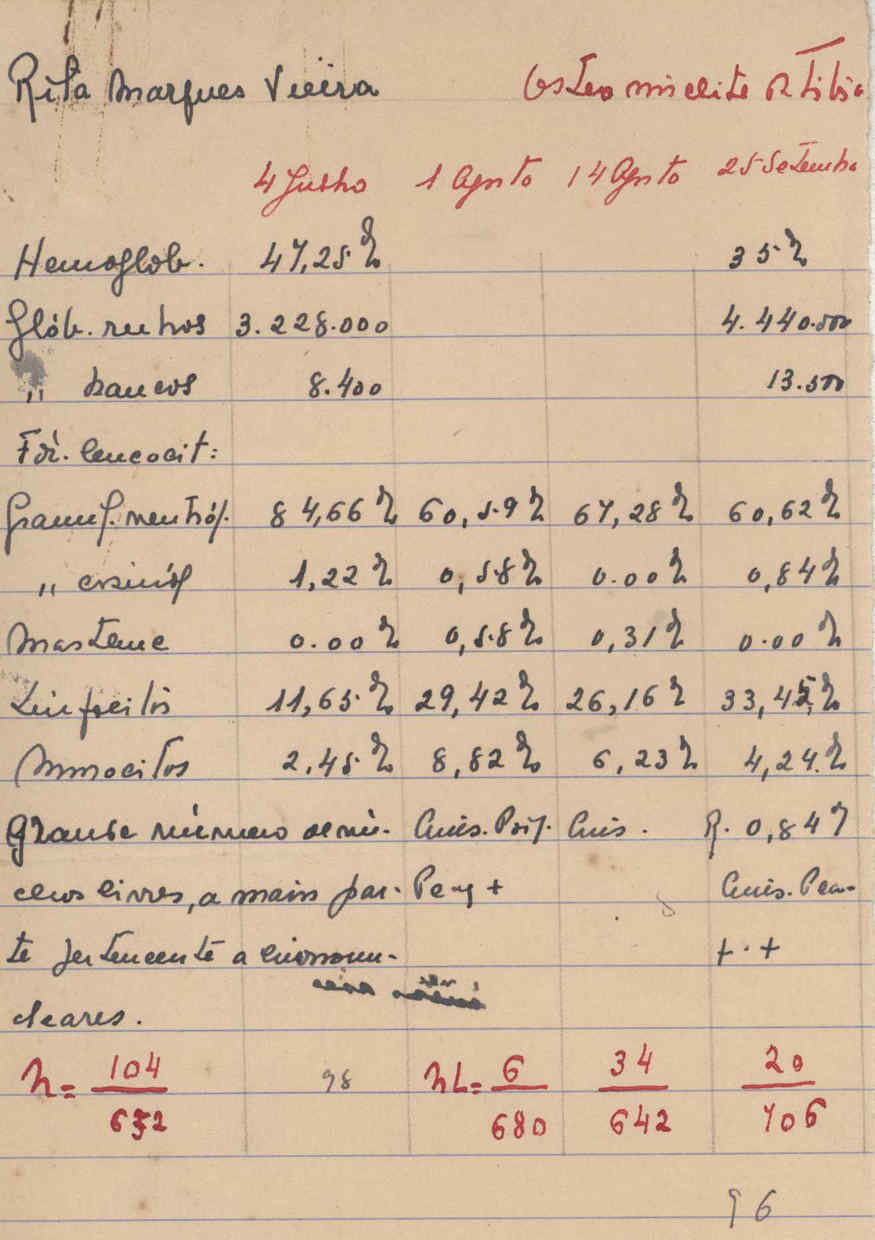 Rita Marques Vieira Osteomielite D Tibia
4 Julho 1 Agosto 14 Agosto 25 Setembro
Hemoglob. 47,25% 35%
Glób. rubros 3.228.000 4.440.500
,, brancos 8.400 13.500
För. leucocit:
Granul. neutróf. 84,66% 60,59% 67,28% 60,62%
,, eosinóf 1,22% 0,58% 0.00% 0,84%
Mastene 0.00% 0,58% 0,31% 0.00%
Linfocitos 11,65% 29,42% 26,16% 33,45%
Monocitos 2,45% 8,82% 6,23% 4,24%
Grande número de nú- Anis. Poiq. Anis. R. 0,84%
cleos livres, a maior par-
te pertencente a linfomonu- + . +
cleares.
n = 104 98 nL = 6 34 20
652 680 642 706
96